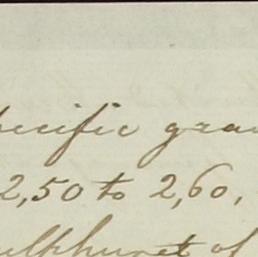 pecific gra
2,50 to 2,60,
ulphuret of